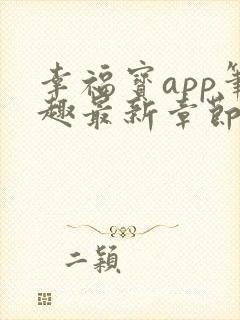 幸福宝app笔
趣最新章节
二颖